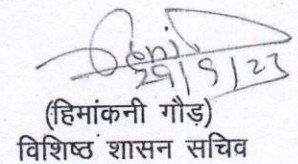 29/9/23
(हिमांकनी गौड़)
विशिष्ठ शासन सचिव